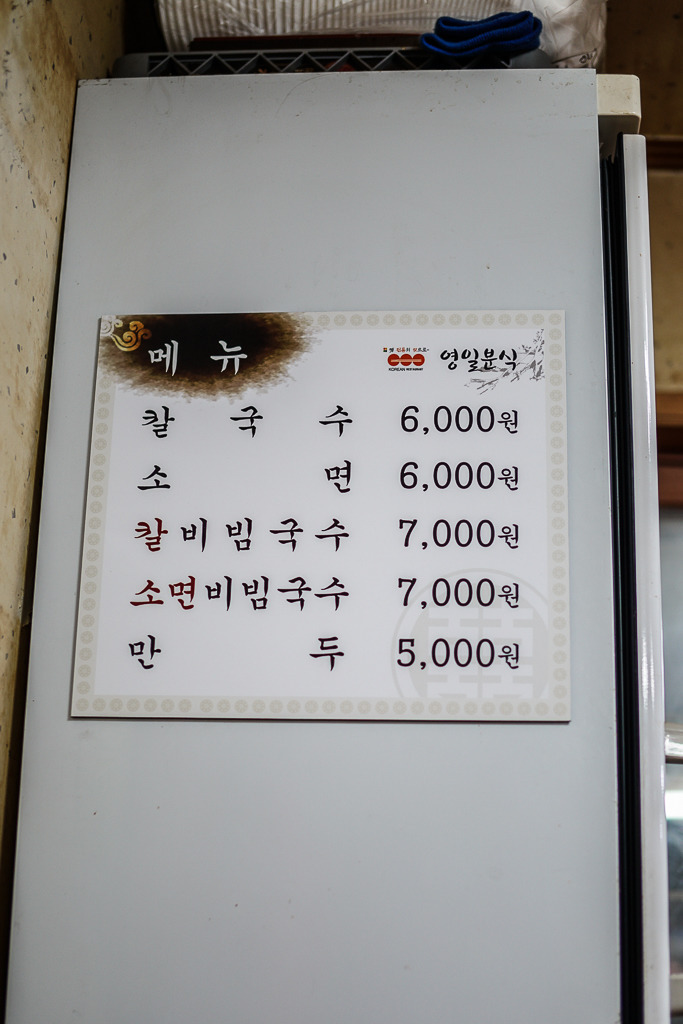 메 뉴
영일분식
KOREAN RESTAURANT
칼 국 수 6,000원
소 면 6,000원
칼비빔국수 7,000원
소면비빔국수 7,000원
만 두 5,000원